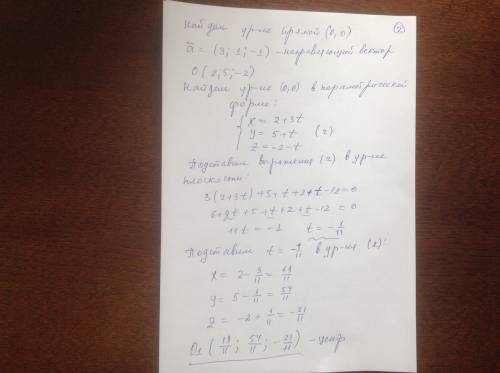 ②
Найдем ур-ие прямой (0,0)
ā = (3; 1; -1) - направляющий вектор
O (2; 5; -2)
Найдем ур-ие (0,0) в параметрической
форме:
{ x = 2+3t
y = 5+t (2)
z = -2-t
Подставим выражения (2) в ур-ие
плоскости:
3(2+3t)+5+t+2+t-12=0
6+9t+5+t+2+t-12=0
11t = -1 t = -1/11
Подставим t = -1/11 в ур-ия (2):
x = 2 - 3/11 = 19/11
y = 5 - 1/11 = 54/11
z = -2 + 1/11 = -21/11
O₁ (19/11; 54/11; -21/11) - центр